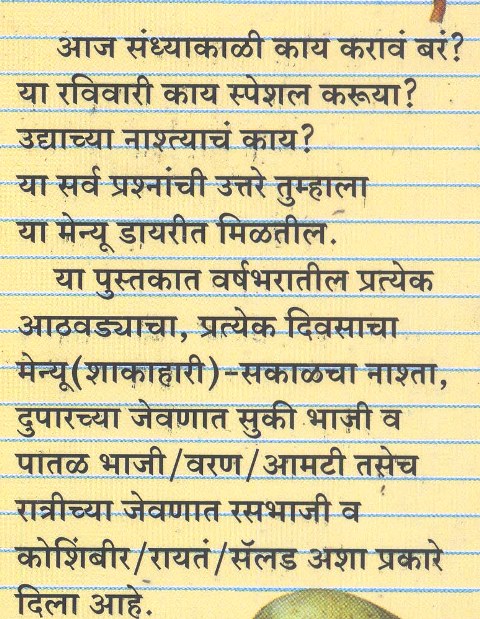 आज संध्याकाळी काय करावं बरं?
या रविवारी काय स्पेशल करूया?
उद्याच्या नाश्त्याचं काय?
या सर्व प्रश्नांची उत्तरे तुम्हाला
या मेन्यू डायरीत मिळतील.
या पुस्तकात वर्षभरातील प्रत्येक
आठवड्याचा, प्रत्येक दिवसाचा
मेन्यू(शाकाहारी)-सकाळचा नाश्ता,
दुपारच्या जेवणात सुकी भाजी व
पातळ भाजी/वरण/आमटी तसेच
रात्रीच्या जेवणात रसभाजी व
कोशिंबीर/रायतं/सॅलड अशा प्रकारे
दिला आहे.